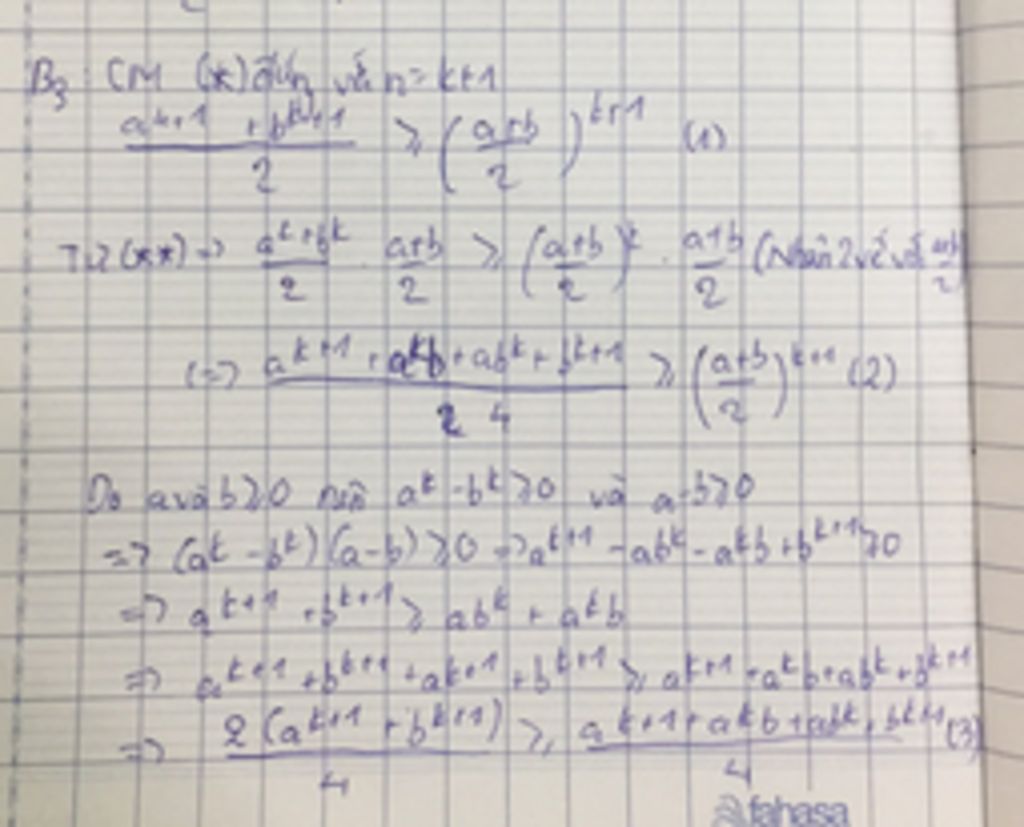 B3: CM (*) đúng với n = k+1
(a^{k+1} + b^{k+1})/2 ≥ ((a+b)/2)^{k+1} (1)
Từ (**) => (a^k + b^k)/2 . (a+b)/2 ≥ ((a+b)/2)^k . (a+b)/2 (Nhân 2 vế với (a+b)/2)
(=> (a^{k+1} + a^k b + ab^k + b^{k+1})/4 ≥ ((a+b)/2)^{k+1} (2)
Do a và b ≥ 0 nên a^k - b^k ≥ 0 và a-b ≥ 0
=> (a^k - b^k)(a-b) ≥ 0 => a^{k+1} - ab^k - a^k b + b^{k+1} ≥ 0
=> a^{k+1} + b^{k+1} ≥ ab^k + a^k b
=> a^{k+1} + b^{k+1} + a^{k+1} + b^{k+1} ≥ a^{k+1} + a^k b + ab^k + b^{k+1}
=> 2(a^{k+1} + b^{k+1})/4 ≥ (a^{k+1} + a^k b + ab^k + b^{k+1})/4 (3)
fahasa